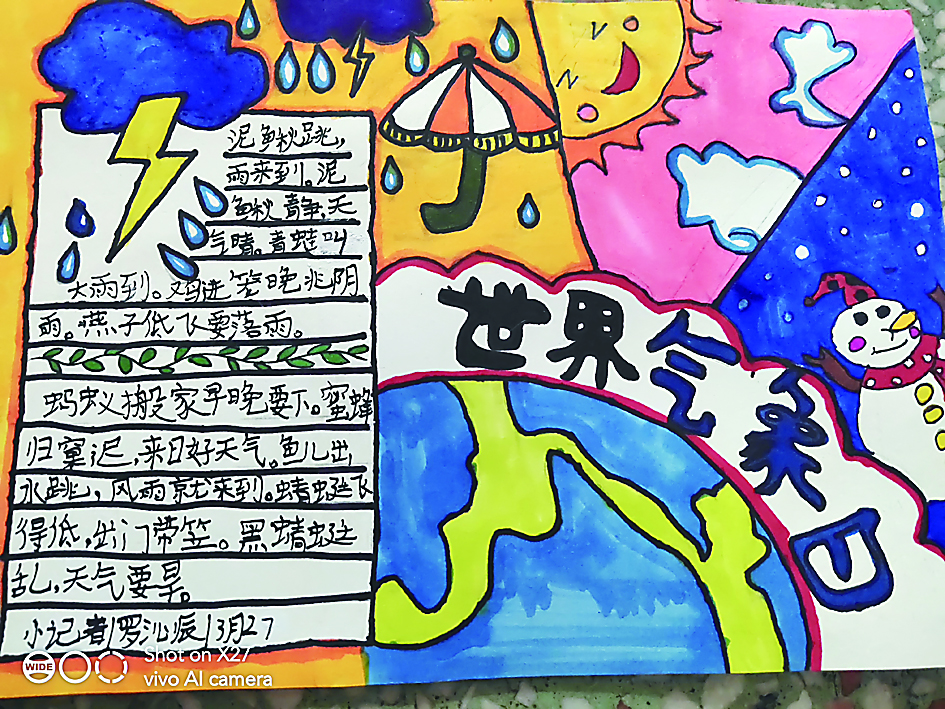 泥鳅跳,
雨来到。泥
鳅静,天
气晴。青蛙叫
大雨到。鸡进笼晚兆阴
雨。燕子低飞要落雨。
蚂蚁搬家早晚要下。蜜蜂
归窠迟,来日好天气。鱼儿出
水跳,风雨就来到。蜻蜓飞
得低,出门带笠。黑蜻蜓
乱,天气要旱。
小记者/罗沁辰/3月27
世界气象日
WIDE
Shot on X27
vivo AI camera